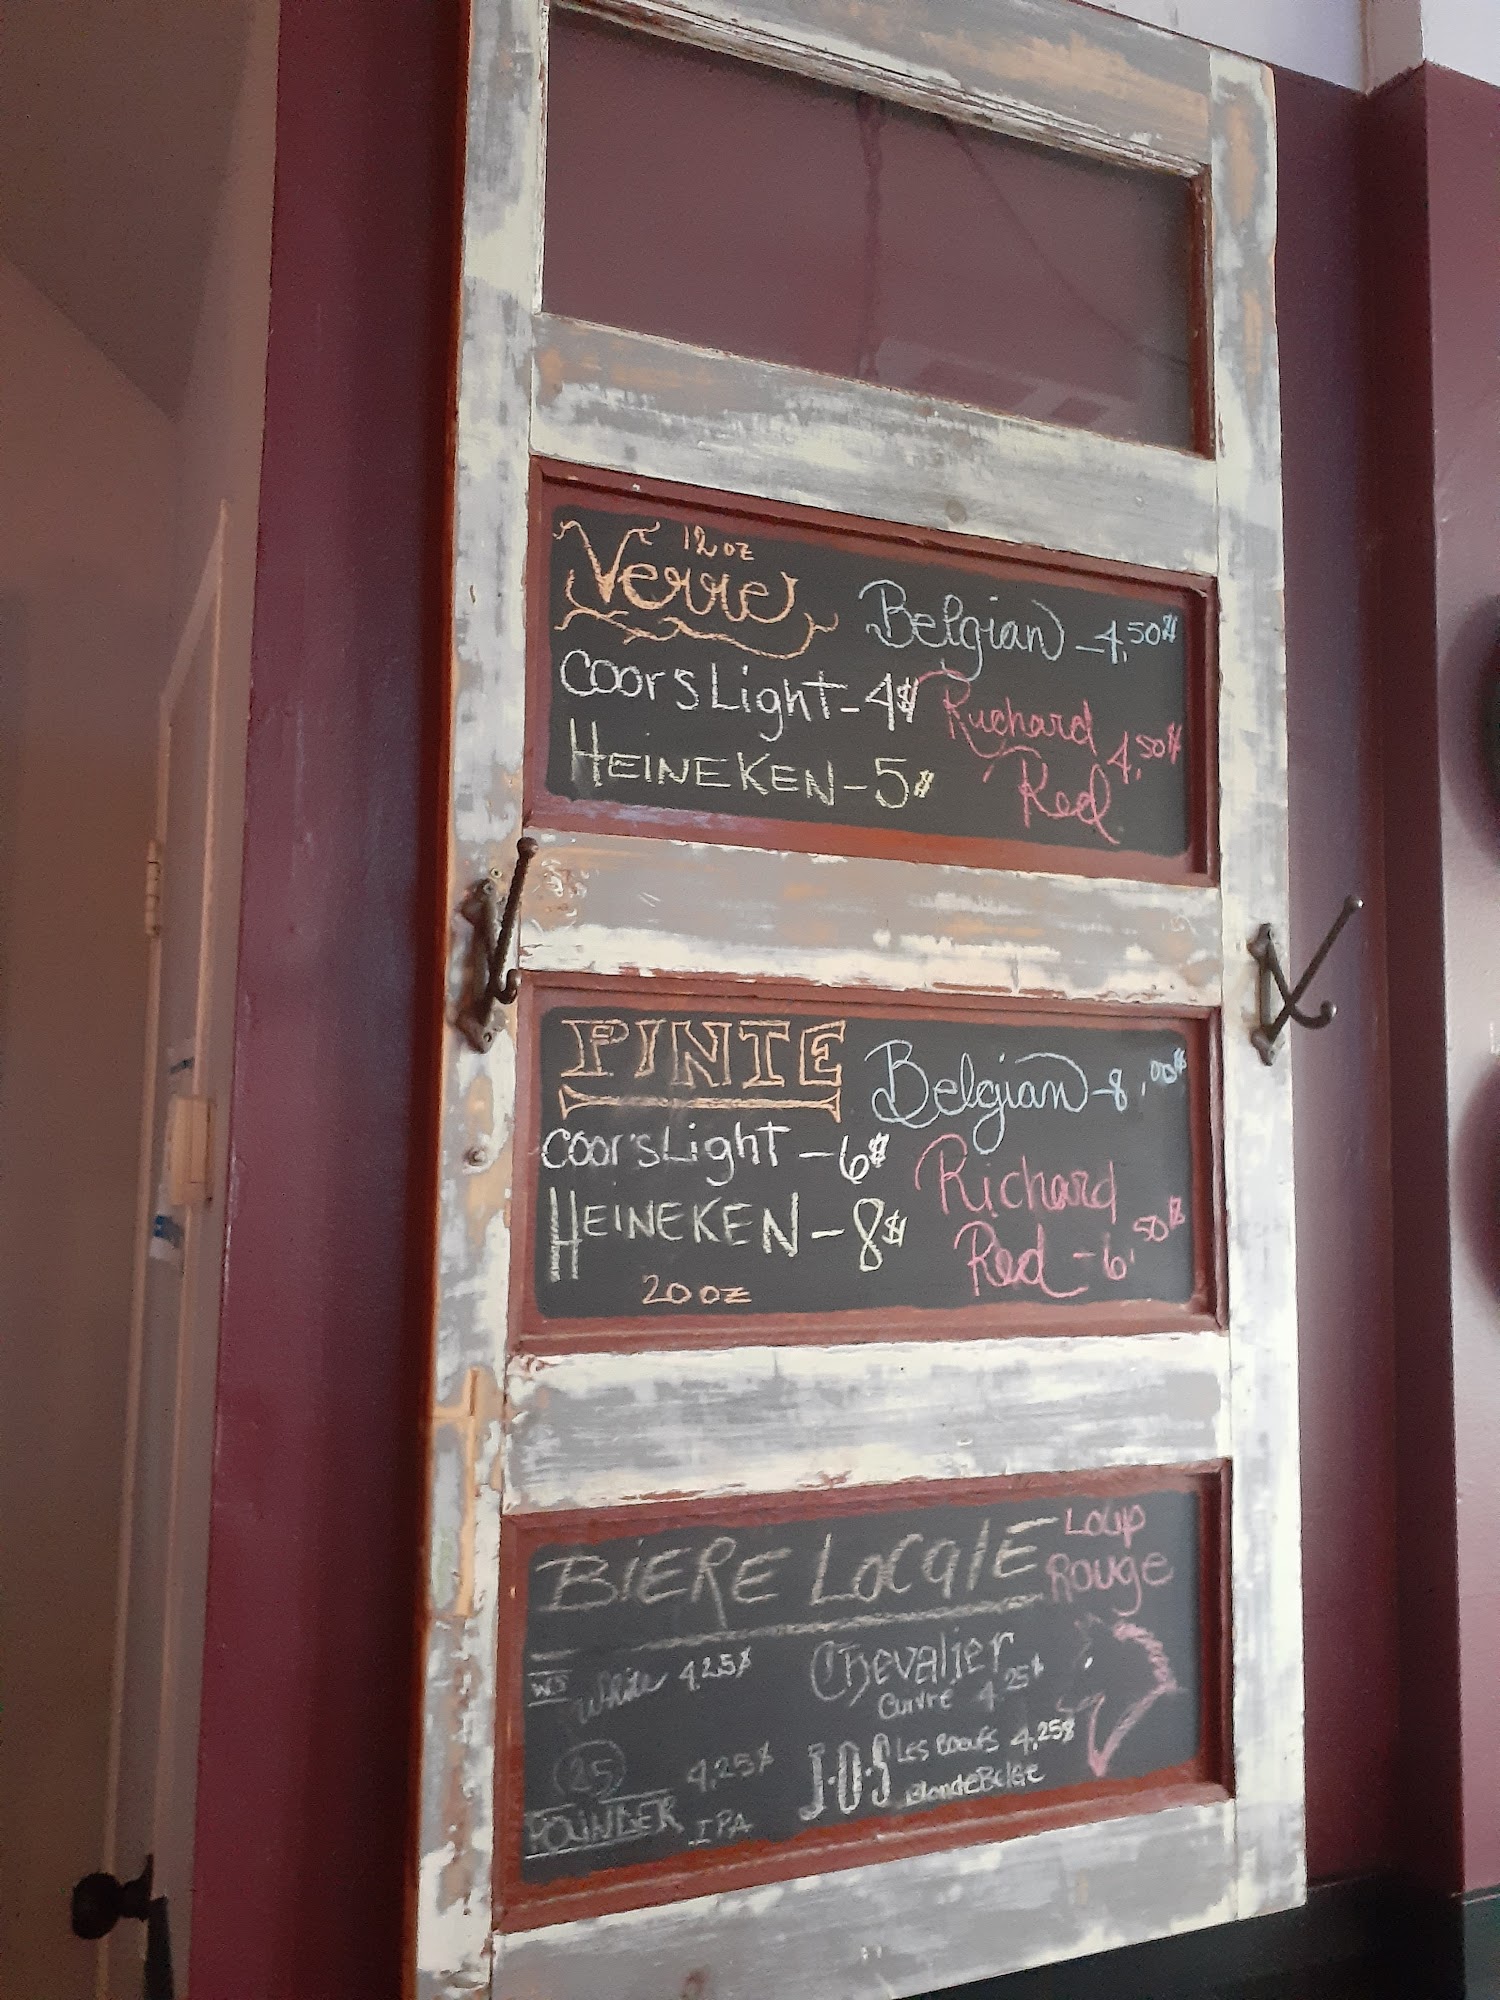 12 oz
Verre
Belgian - 4,50$
Coors Light - 4$
Richard
Red 4,50$
HEINEKEN - 5$
PINTE
Belgian - 8,00$
Coor's Light - 6$
Richard
Red - 6,50$
HEINEKEN - 8$
20 oz
BIERE LOCALE
Loup
Rouge
White 4,25$
Chevalier
Cuivré 4,25$
25
POUNDER
4,25$
IPA
J.O.S
Les Boeufs 4,25$
Blonde Belge